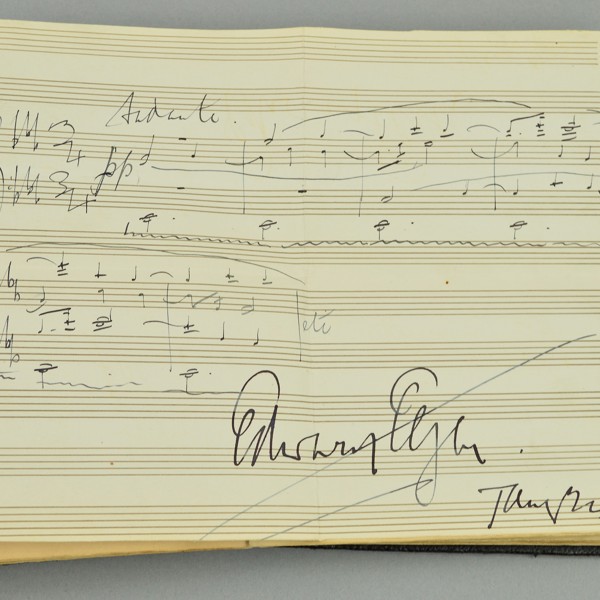 Andante.
3/4
pp
3/4
etc
Edward Elgar.